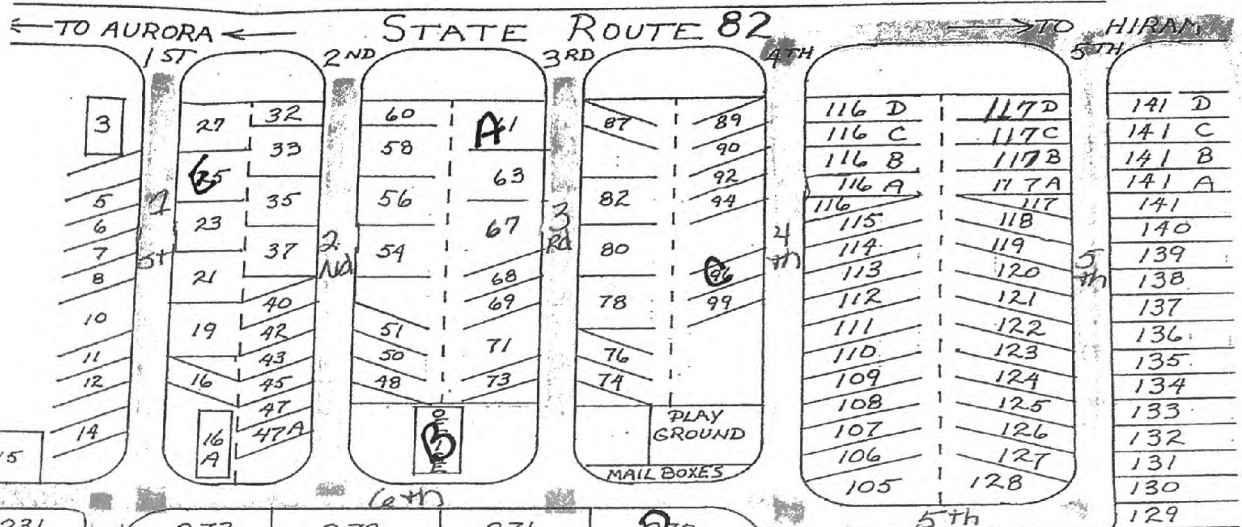 ← TO AURORA ←
STATE ROUTE 82
→ TO HIRAM
1ST
2ND
3RD
4TH
5TH
3
5
6
7
8
10
11
12
14
1
st
27
25
23
21
19
16
16
A
32
33
35
37
40
42
43
45
47
47A
2
Nd
60
58
56
54
51
50
48
A
61
63
67
68
69
71
73
OFFICE
3
Rd
87
82
80
78
76
74
89
90
92
94
96
99
PLAY
GROUND
MAIL BOXES
4
th
116 D
116 C
116 B
116 A
116
115
114
113
112
111
110
109
108
107
106
105
117D
117C
117B
117A
117
118
119
120
121
122
123
124
125
126
127
128
5
th
141 D
141 C
141 B
141 A
141
140
139
138
137
136
135
134
133
132
131
130
129
6th
5th
231
273
272
271